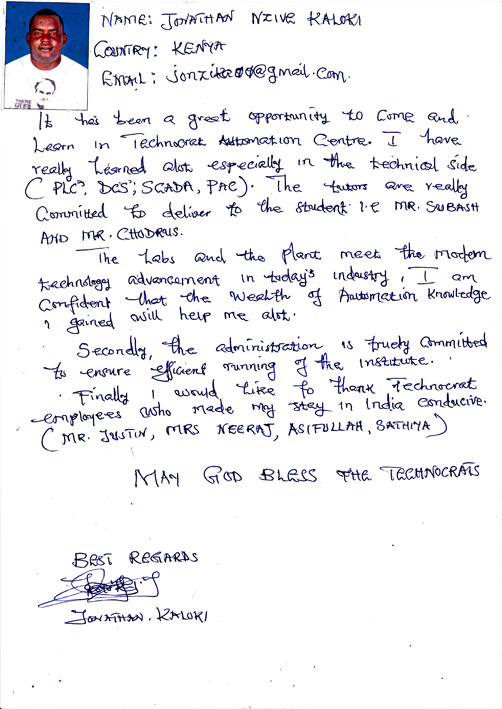 NAME: JONATHAN NZIVE KALOKI
COUNTRY: KENYA
EMAIL: @gmail.com.
It has been a great opportunity to come and
Learn in Technocrat Automation Centre. I have
really Learned alot especially in the technical side
(PLC's, DCS'; SCADA, PAC). The tutors are really
Committed to deliver to the student i.e MR. SUBASH
AND MR. CHODRUS.
The Labs and the plant meet the modern
technology advancement in today's industry, I am
Confident that the wealth of Automation Knowledge
I gained will help me alot.
Secondly, the administration is truely Committed
to ensure efficient running of the institute.
Finally I would Like to thank Technocrat
employees who made my stay in India conducive.
(MR. JUSTIN, MRS NEERAJ, ASIFULLAH, SATHIYA)
MAY GOD BLESS THE TECHNOCRATS
BEST REGARDS
JONATHAN. KALOKI